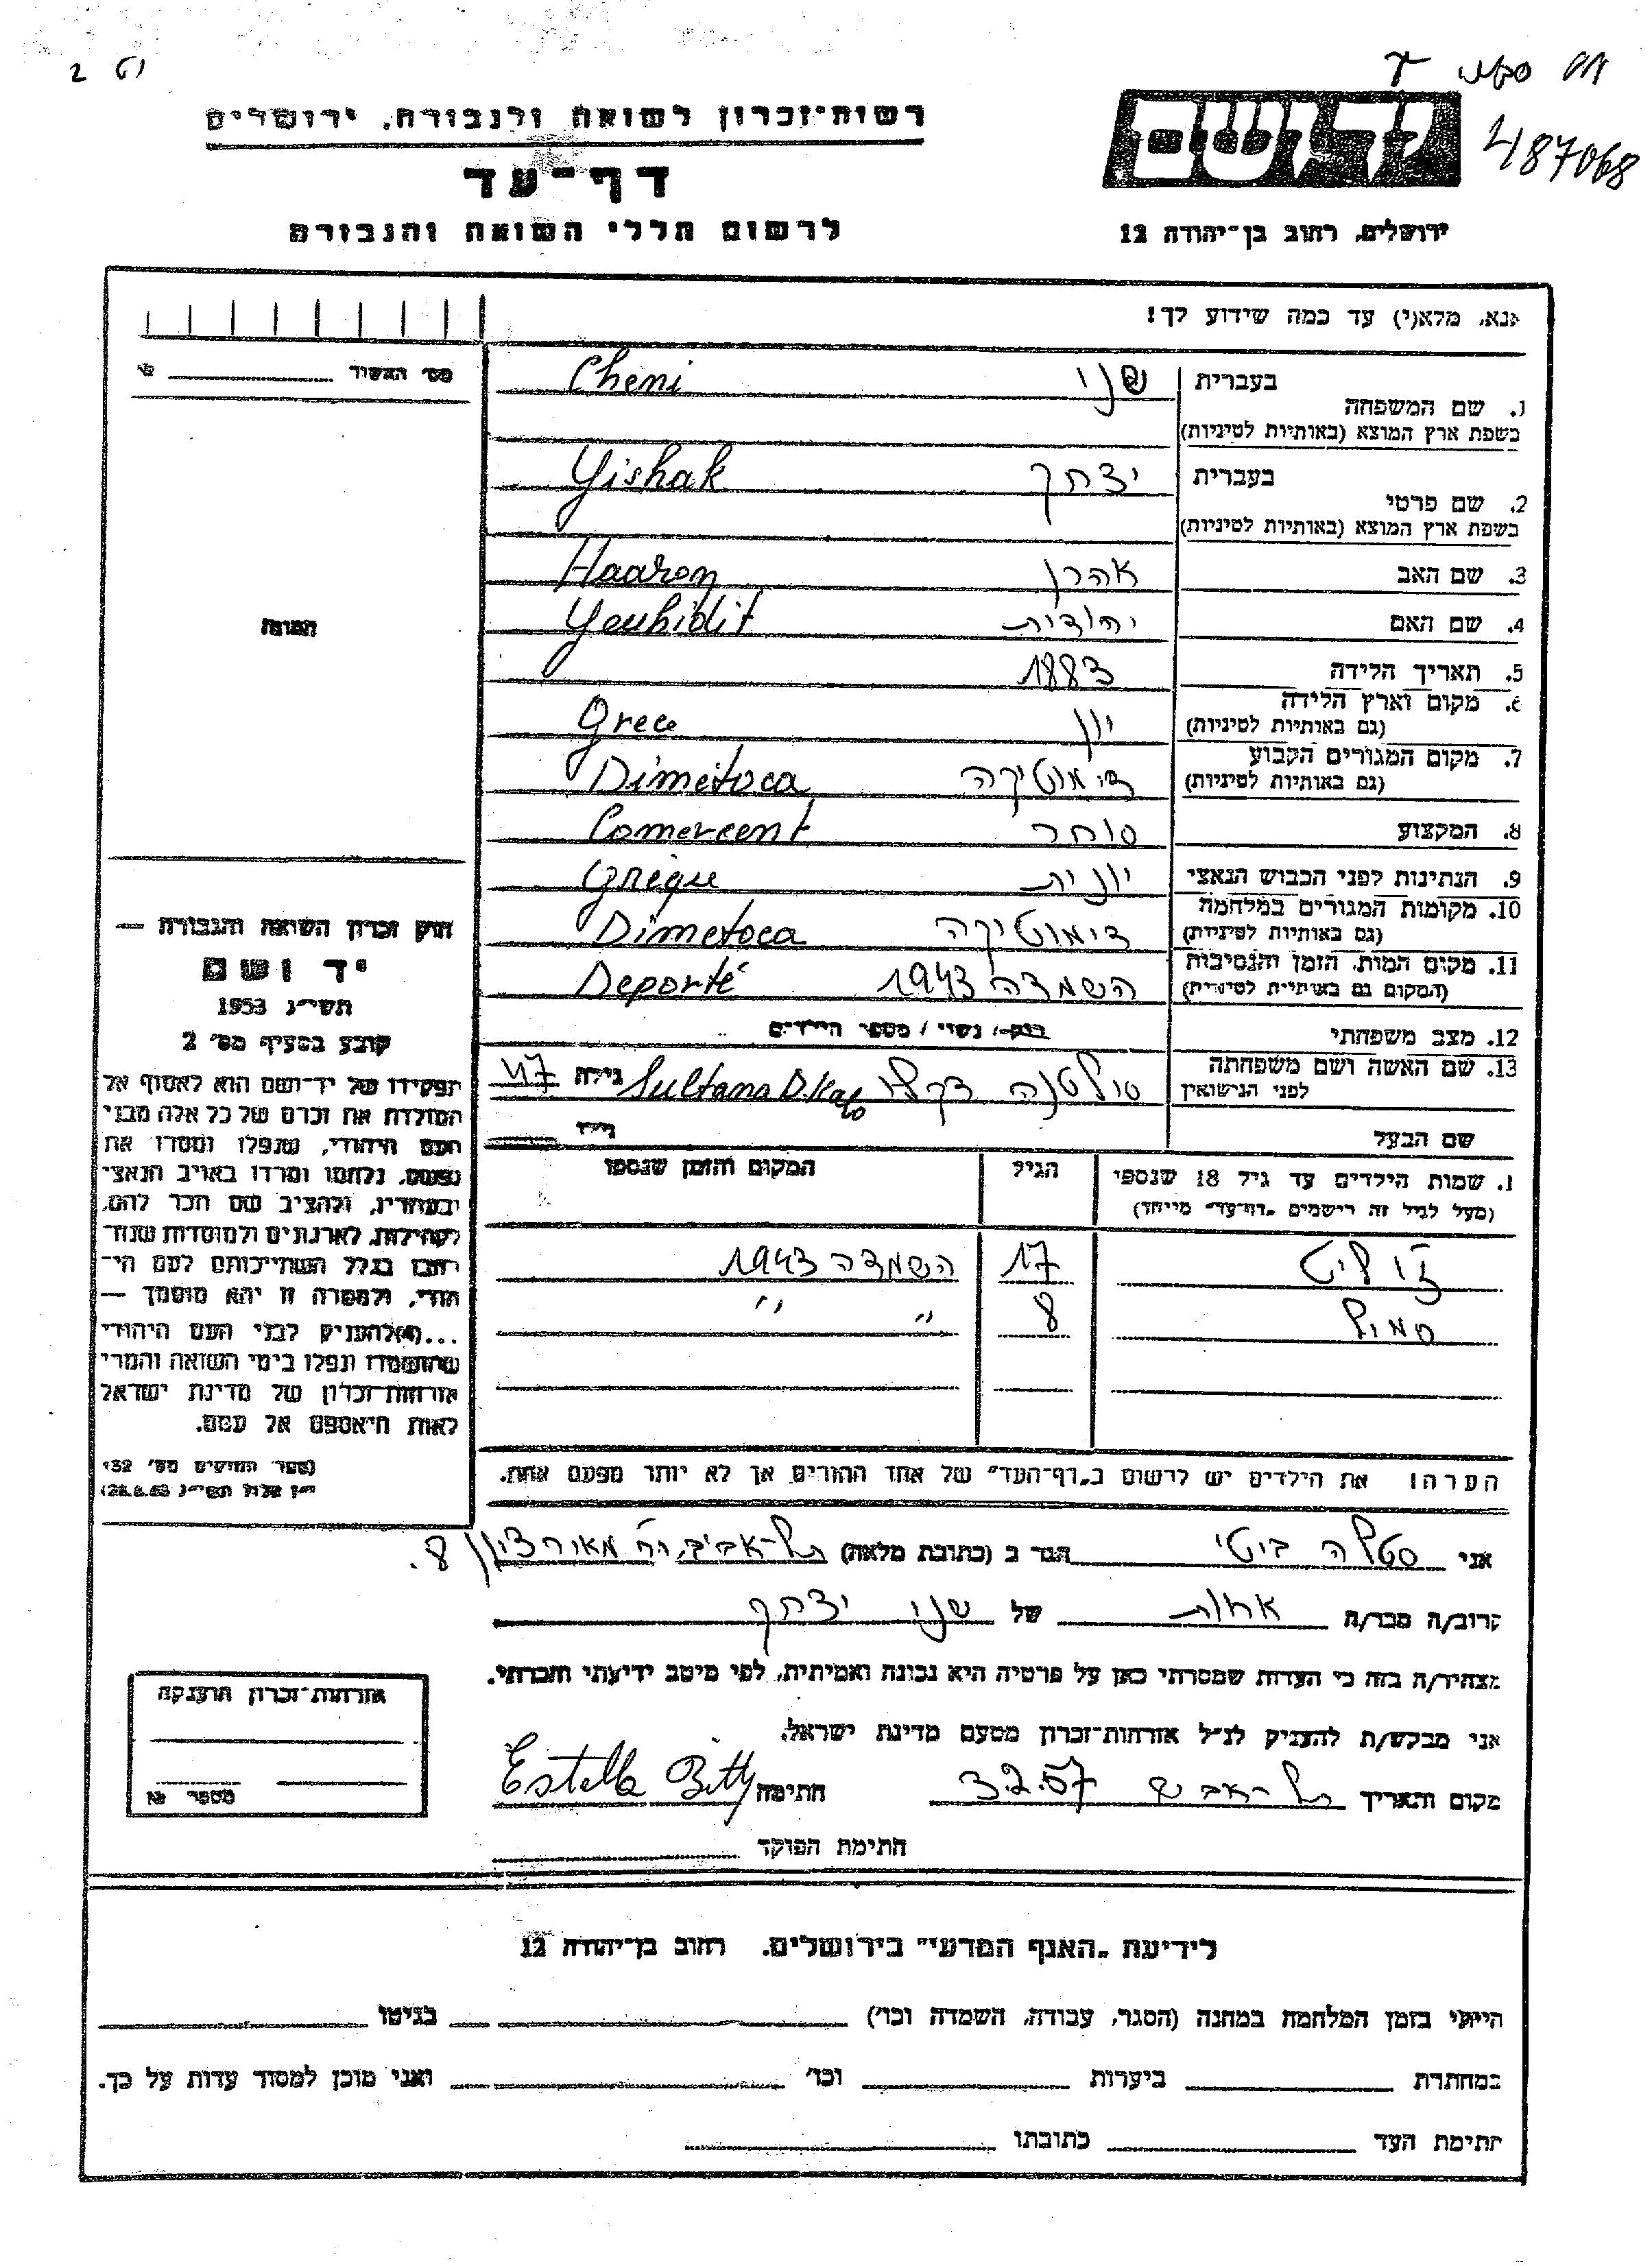 487068
רשות-זכרון לשואה ולגבורה, ירושלים
דף-עד
לרשום חללי השואה והגבורה
ירושלים, רחוב בן-יהודה 12
אנא, מלא(י) עד כמה שידוע לך!
מס' האשוד
1. שם המשפחה
בעברית שני Cheni
בשפת ארץ המוצא (באותיות לטיניות)
2. שם פרטי
בעברית יצחק Yishak
בשפת ארץ המוצא (באותיות לטיניות)
3. שם האב אהרן Haaron
4. שם האם יהודית Youhidit
5. תאריך הלידה 1883
6. מקום וארץ הלידה יון Grece
(גם באותיות לטיניות)
7. מקום המגורים הקבוע דימוטיקה Dimetoca
(גם באותיות לטיניות)
8. המקצוע סוחר Comercent
9. הנתינות לפני הכבוש הנאצי יונית Grèque
10. מקומות המגורים במלחמה דימוטיקה Dimetoca
(גם באותיות לטיניות)
11. מקום המות, הזמן והנסיבות השמדה 1943 Deporté
(המקום גם באותיות לטיניות)
12. מצב משפחתי רווק / נשוי / מספר הילדים
13. שם האשה ושם משפחתה סולטנה דקלו Sultana D.Kalo גילה 47
לפני הנישואין
שם הבעל גילו
שמות הילדים עד גיל 18 שנספו הגיל המקום והזמן שנספו
(מעל לגיל זה רישמים „דף-עד" מייחד)
ז'ולייט 17 השמדה 1943
סמול 8 " "
הערה! את הילדים יש לרשום ב„דף-העד" של אחד ההורים אך לא יותר מפעם אחת.
התמונה
חוק זכרון השואה והגבורה —
יד ושם
תשי"ג 1953
קובע בסעיף מס' 2
תפקידו של יד-ושם הוא לאסוף אל
המולדת את זכרם של כל אלה מבני
העם היהודי, שנפלו ומסרו את
נפשם, נלחמו ומרדו באויב הנאצי
ובעוזריו, ולהציב שם וזכר להם,
לקהילות, לארגונים ולמוסדות שנח-
רבו בגלל השתייכותם לעם הי-
הודי, ולמטרה זו יהא מוסמך —
...(4)להעניק לבני העם היהודי
שהושמדו ונפלו בימי השואה והמרי
אזרחות-זכרון של מדינת ישראל
לאות היאספם אל עמם.
(ספר החוקים מס' 132
י"ז אלול תשי"ג 28.8.53)
אני סטלה ביטי הגר ב (כתובת מלאה) תל-אביב, רח' מאור ציון 8.
קרוב/ה מכר/ה אחות של שני יצחק
מצהיר/ה בזה כי העדות שמסרתי כאן על פרטיה היא נכונה ואמיתית, לפי מיטב ידיעתי והכרתי.
אני מבקש/ת להעניק לנ"ל אזרחות-זכרון מטעם מדינת ישראל.
מקום ותאריך תל-אביב 3.2.57 חתימה Estella Bitty
חתימת הפוקד
אזרחות-זכרון הוענקה
מספר №
לידיעת „האגף המדעי" בירושלים. רחוב בן-יהודה 12
הייתי בזמן המלחמה במחנה (הסגר, עבודה, השמדה וכו') בגיטו
במחתרת ביערות וכו' ואני מוכן למסור עדות על כך.
חתימת העד כתובתו